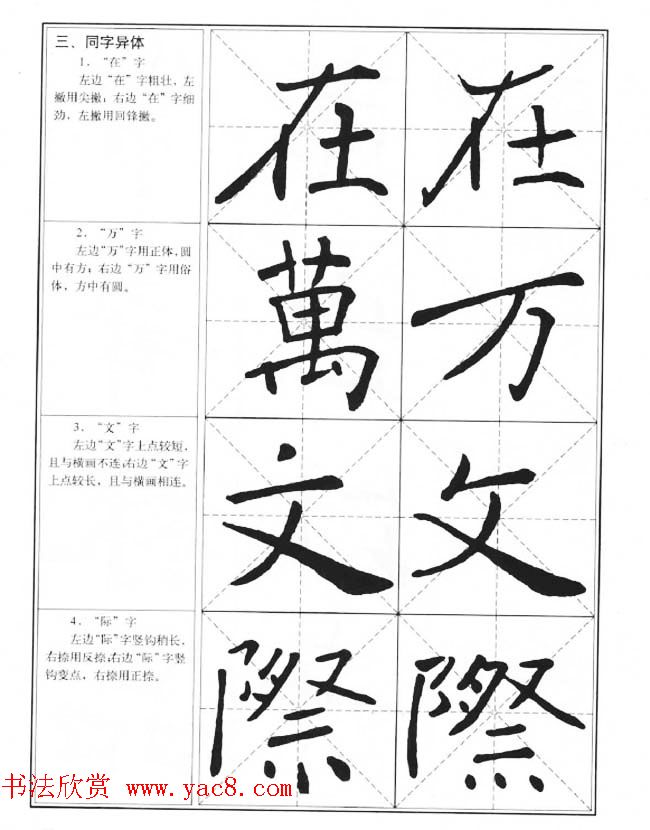 三、同字异体
1. “在”字
左边“在”字粗壮，左
撇用尖撇；右边“在”字细
劲，左撇用回锋撇。
在 在
2. “万”字
左边“万”字用正体，圆
中有方；右边“万”字用俗
体，方中有圆。
萬 万
3. “文”字
左边“文”字上点较短，
且与横画不连；右边“文”字
上点较长，且与横画相连。
文 文
4. “际”字
左边“际”字竖钩稍长，
右捺用反捺；右边“际”字竖
钩变点，右捺用正捺。
際 際
书法欣赏 www.yac8.com